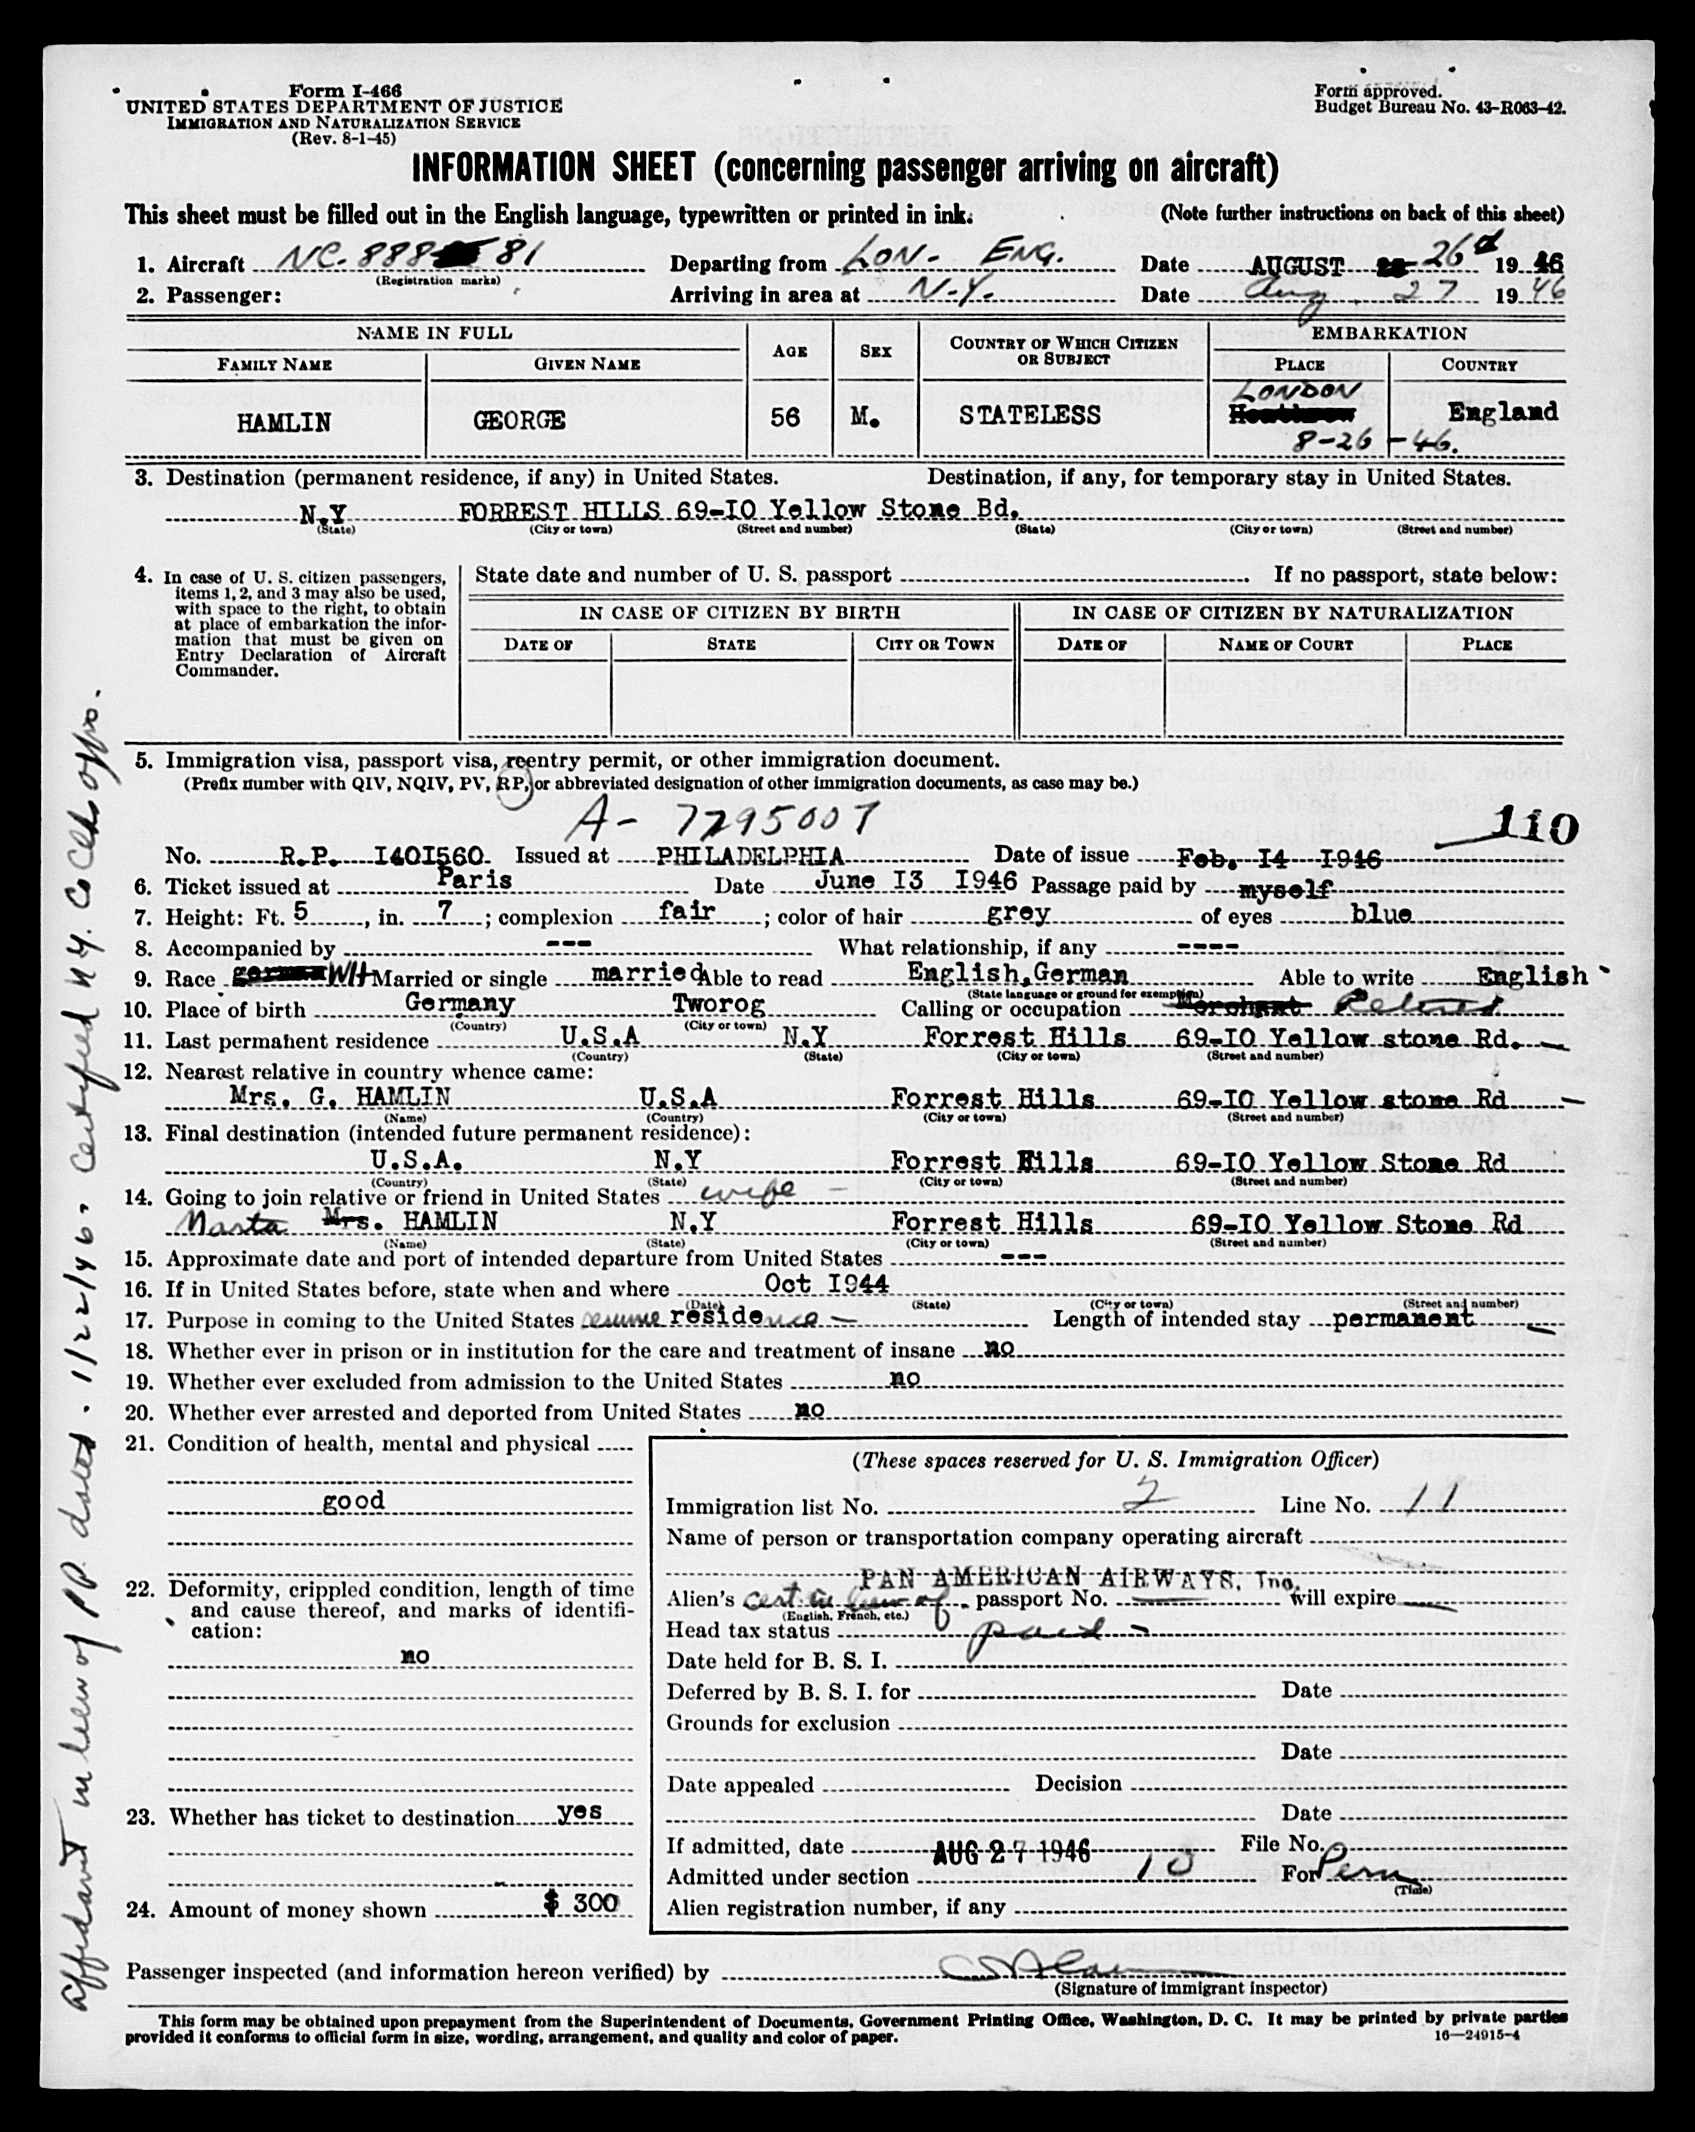 Form I-466
UNITED STATES DEPARTMENT OF JUSTICE
IMMIGRATION AND NATURALIZATION SERVICE
(Rev. 8-1-45)
Form approved.
Budget Bureau No. 43-R063-42.
INFORMATION SHEET (concerning passenger arriving on aircraft)
This sheet must be filled out in the English language, typewritten or printed in ink. (Note further instructions on back of this sheet)
1. Aircraft NC-888 81 Departing from LON- ENG. Date AUGUST 26 19 46
(Registration marks)
2. Passenger: Arriving in area at N.Y. Date Aug. 27 19 46
NAME IN FULL AGE SEX COUNTRY OF WHICH CITIZEN OR SUBJECT EMBARKATION
FAMILY NAME GIVEN NAME PLACE COUNTRY
LONDON
HAMLIN GEORGE 56 M. STATELESS England
8-26-46.
3. Destination (permanent residence, if any) in United States. Destination, if any, for temporary stay in United States.
N.Y FORREST HILLS 69-IO Yellow Stone Bd.
(State) (City or town) (Street and number) (State) (City or town) (Street and number)
4. In case of U. S. citizen passengers, items 1, 2, and 3 may also be used, with space to the right, to obtain at place of embarkation the information that must be given on Entry Declaration of Aircraft Commander.
State date and number of U. S. passport If no passport, state below:
IN CASE OF CITIZEN BY BIRTH IN CASE OF CITIZEN BY NATURALIZATION
DATE OF STATE CITY OR TOWN DATE OF NAME OF COURT PLACE
5. Immigration visa, passport visa, reentry permit, or other immigration document.
(Prefix number with QIV, NQIV, PV, RP, or abbreviated designation of other immigration documents, as case may be.)
A- 7295007 110
No. R.P. I40I560 Issued at PHILADELPHIA Date of issue Feb. I4 I946
6. Ticket issued at Paris Date June I3 I946 Passage paid by myself
7. Height: Ft. 5, in. 7; complexion fair; color of hair grey of eyes blue
8. Accompanied by --- What relationship, if any ----
9. Race german WH Married or single married Able to read English,German Able to write English
(State language or ground for exemption)
10. Place of birth Germany Tworog Calling or occupation Merchant Retired
(Country) (City or town)
11. Last permanent residence U.S.A N.Y Forrest Hills 69-IO Yellow stone Rd.
(Country) (State) (City or town) (Street and number)
12. Nearest relative in country whence came:
Mrs. G. HAMLIN U.S.A Forrest Hills 69-IO Yellow stone Rd
(Name) (Country) (City or town) (Street and number)
13. Final destination (intended future permanent residence):
U.S.A. N.Y Forrest Hills 69-IO Yellow Stone Rd
(Country) (State) (City or town) (Street and number)
14. Going to join relative or friend in United States wife -
Marta Mrs. HAMLIN N.Y Forrest Hills 69-IO Yellow Stone Rd
(Name) (State) (City or town) (Street and number)
15. Approximate date and port of intended departure from United States ---
16. If in United States before, state when and where Oct I944
(Date) (State) (City or town) (Street and number)
17. Purpose in coming to the United States resume residence Length of intended stay permanent
18. Whether ever in prison or in institution for the care and treatment of insane no
19. Whether ever excluded from admission to the United States no
20. Whether ever arrested and deported from United States no
21. Condition of health, mental and physical
good
22. Deformity, crippled condition, length of time and cause thereof, and marks of identification:
no
23. Whether has ticket to destination yes
24. Amount of money shown $ 300
(These spaces reserved for U. S. Immigration Officer)
Immigration list No. 2 Line No. 11
Name of person or transportation company operating aircraft
PAN AMERICAN AIRWAYS, Inc.
Alien's cert in lieu of passport No. will expire
(English, French, etc.)
Head tax status paid -
Date held for B. S. I.
Deferred by B. S. I. for Date
Grounds for exclusion
Date
Date appealed Decision
Date
If admitted, date AUG 27 1946 File No.
Admitted under section 13 For Perm
(Time)
Alien registration number, if any
Passenger inspected (and information hereon verified) by
(Signature of immigrant inspector)
This form may be obtained upon prepayment from the Superintendent of Documents, Government Printing Office, Washington, D. C. It may be printed by private parties
provided it conforms to official form in size, wording, arrangement, and quality and color of paper. 16—24915-4
affidavit in lieu of PP. dated. 1/22/46. Certified N.Y. Co Clks offs.